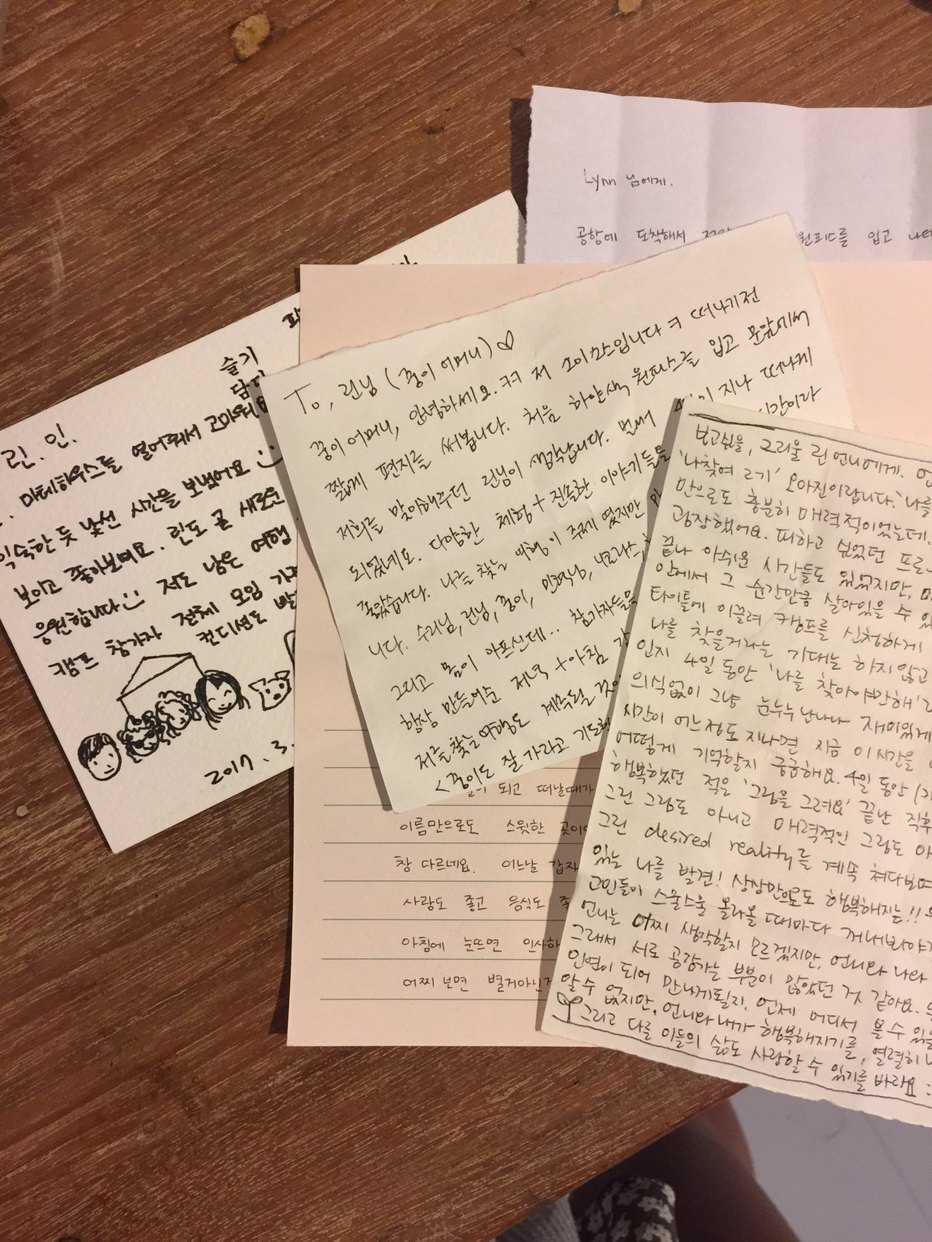 Lynn 님에게.
공항에 도착해서 원피스를 입고
슬기
린. 인.
마테하우스를 열어줘서 고마워요
익숙한 듯 낯선 시간을 보냈어요 :)
보이고 좋아보여요. 린도 곧 새로운
응원합니다 :) 저도 남은 여행
캠프 참가자 전체 모임
컨디션도
2017. 3.
To, 린님 (꿍이 어머니) ♡
꿍이 어머니, 안녕하세요. ㅋㅋ 저 ㅋ 떠나기전
짧게 편지를 써봅니다. 처음 하얀색 원피스를 입고 문앞에서
저희를 맞이해주던 린님이 생각납니다. 벌써 지나 떠나게
되었네요. 다양한 체험 + 진솔한 이야기들을 시간이라
좋았습니다. 나를 찾는 여행이 주제 였지만
니다. 수리님, 린님, 꿍이,
그리고 몸이 아프신데.. 참가자들을
항상 만들어준 저녁 + 아침
저를 찾는 여행도 계속될
<꿍이도 잘 가라고
되고 떠날때가
이름만으로도 스윗한 곳이
참 다르네요. 어느날 갑자
사람도 좋고 음식도
아침에 눈뜨면 인사하
어찌 보면 별거아닌
보고싶을, 그리울 린 언니에게.
오아진이랍니다. '나를
만으로도 충분히 매력적이었는데.
굉장했어요. 피하고 싶었던 프로
끝나 아쉬운 시간들도 있었지만,
안에서 그 순간만큼 살아있을 수 있
타이틀에 이끌려 캠프를 신청하게
나를 찾을거라는 기대는 하지 않고
인지 4일 동안 '나를 찾아야만해'
의식없이 그냥 눈누누난나나 재미있게
시간이 어느정도 지나면 지금 이 시간을
어떻게 기억할지 궁금해요. 4일 동안
행복했던 적은 '그림을 그려요' 끝난 직후
그런 그림도 아니고 매력적인 그림도 아
그런 desired reality를 계속 쳐다보며
있는 나를 발견! 상상만으로도 행복해지는!!
고민들이 스물스물 올라올 때마다 꺼내봐야
언니는 어찌 생각할지 모르겠지만, 언니와 나와
그래서 서로 공감가는 부분이 많았던 것 같아요.
인연이 되어 만나게될지, 언제 어디서 볼 수 있을
알 수 없지만, 언니와 내가 행복해지기를, 열렬히
그리고 다른 이들의 삶도 사랑할 수 있기를 바라요 :